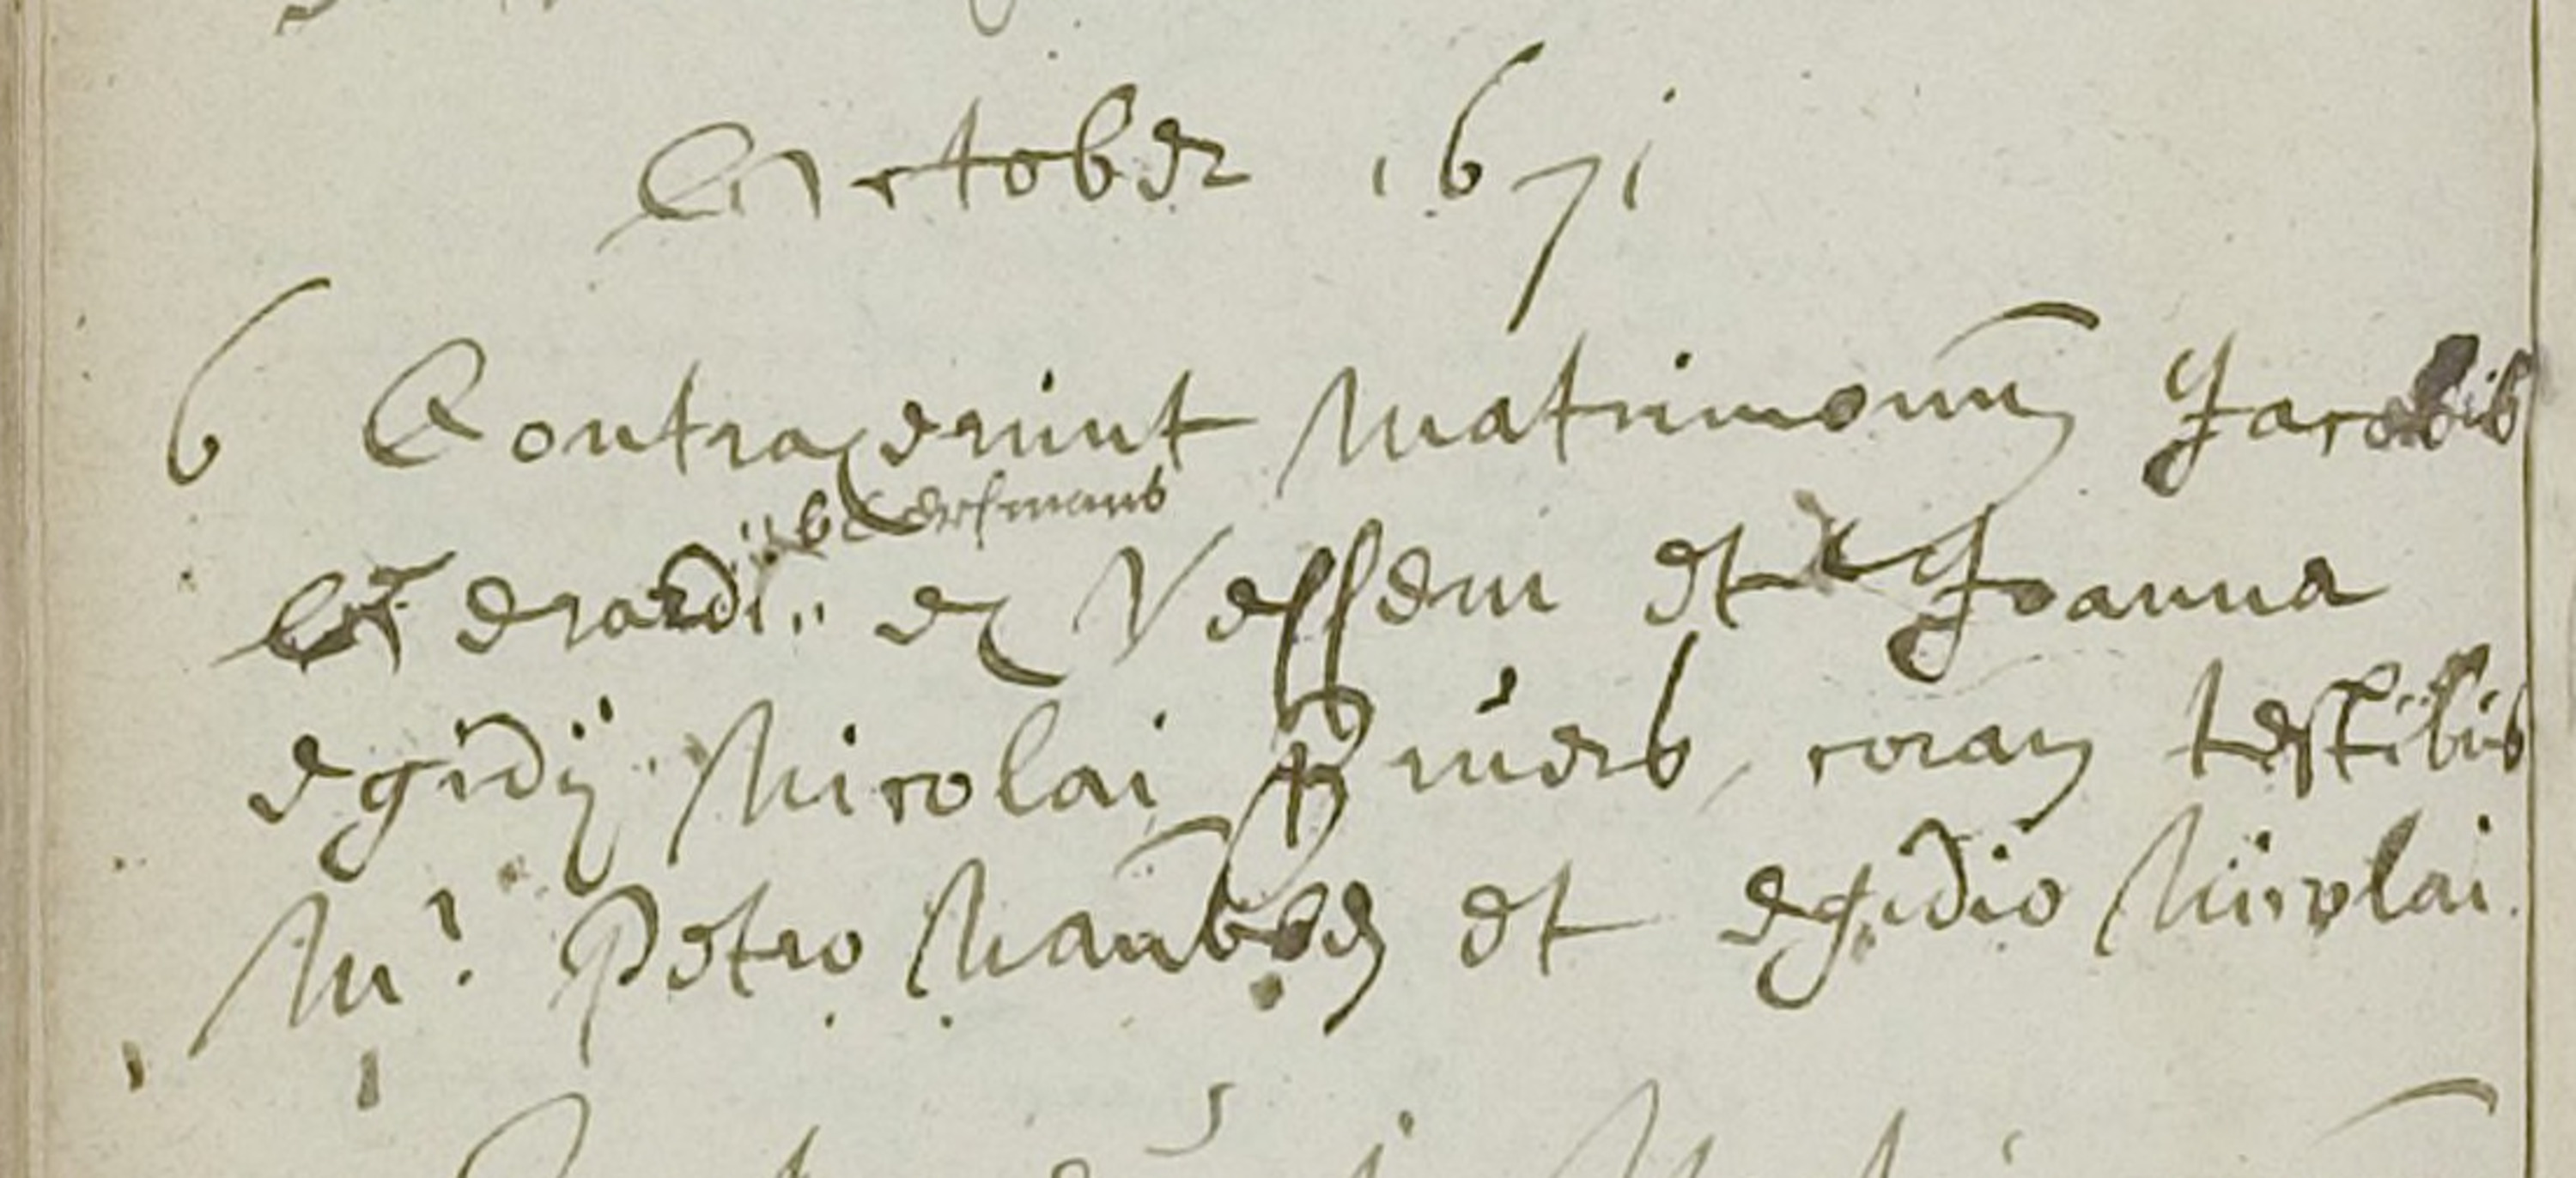 October 1671
6 Contraxerunt Matrimoniū Jacobus
Erardi ex Vessem et Joanna
egidij Nicolai coram testibus
Mr. Petro et egidio Nicolai